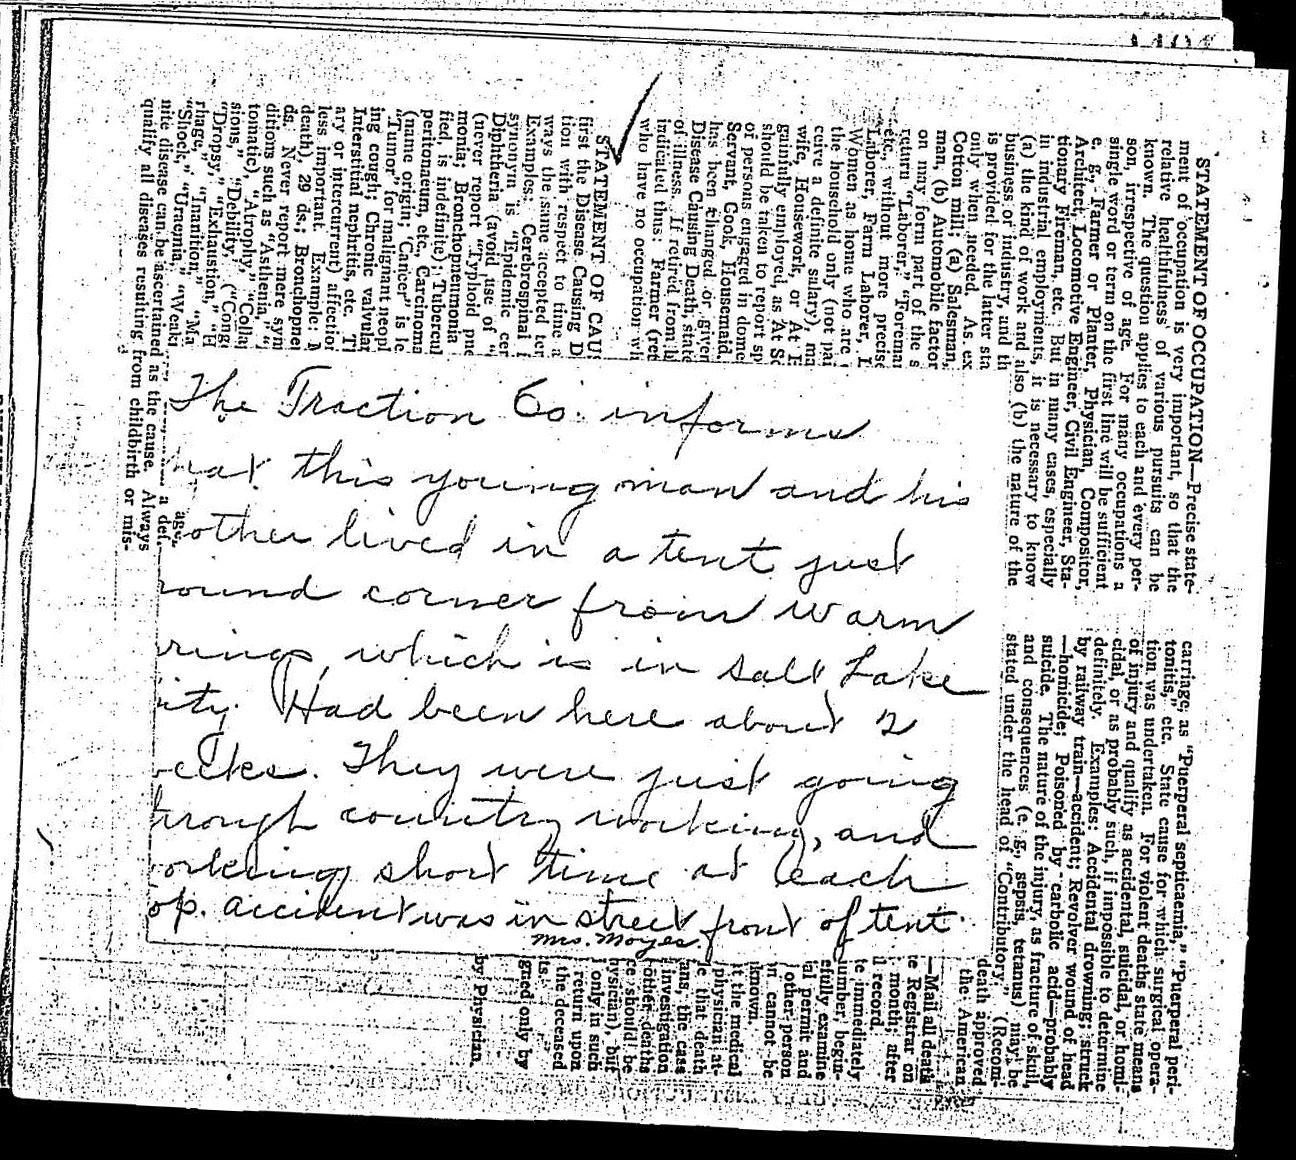 STATEMENT OF OCCUPATION—Precise state-
ment of occupation is very important, so that the
relative healthfulness of various pursuits can be
known. The question applies to each and every per-
son, irrespective of age. For many occupations a
single word or term on the first line will be sufficient
e. g., Farmer or Planter, Physician, Compositor,
Architect, Locomotive Engineer, Civil Engineer, Sta-
tionary Fireman, etc. But in many cases, especially
in industrial employments, it is necessary to know
(a) the kind of work and also (b) the nature of the
business or industry, and th
is provided for the latter sta
only when needed. As ex
Cotton mill; (a) Salesman,
man, (b) Automobile factor
on may form part of the s
return "Laborer," "Foreman
etc., without more precise
Laborer, Farm Laborer, L
Women as home who are
the household only (not pai
ceive a definite salary), ma
wife, Housework, or At H
gainfully employed, as At Sc
should be taken to report sp
or persons engaged in dome
Servant, Cook, Housemaid,
has been changed or given
Disease Causing Death, state
of illness. If retired from b
indicated thus: Farmer (ret
who have no occupation wh
STATEMENT OF CAUS
first the Disease Causing D
tion with respect to time a
ways the same accepted ter
Examples: Cerebrospinal f
synonym is "Epidemic cer
Diphtheria (avoid use of "
(never report "Typhoid pne
monia; Bronchopneumonia
fied, is indefinite); Tubercul
peritonaeum, etc., Carcinoma
(name origin; "Cancer" is le
"Tumor" for malignant neopl
ing cough; Chronic valvular
Interstitial nephritis, etc. Th
ary or intercurrent) affection
less important. Example: M
death), 29 ds.; Bronchopne
ds. Never report mere sym
ditions such as "Asthenia,"
tomatic), "Atrophy," "Collap
sions," "Debility," ("Cong
"Dropsy," "Exhaustion," "H
rhage," "Inanition," "Ma
"Shock," "Uraemia," "Weak
age,"
nite disease can be ascertained as the cause. Always
qualify all diseases resulting from childbirth or mis-
carriage, as "Puerperal septicaemia," "Puerperal peri-
tonitis," etc. State cause for which surgical opera-
tion was undertaken. For violent deaths state means
of injury and qualify as accidental, suicidal, or homi-
cidal, or as probably such, if impossible to determine
definitely. Examples: Accidental drowning; struck
by railway train—accident; Revolver wound of head
—homicide; Poisoned by carbolic acid—probably
suicide. The nature of the injury, as fracture of skull,
and consequences (e. g., sepsis, tetanus) may be
stated under the head of "Contributory." (Recom-
death approved
the American
—Mail all death
e Registrar on
months, after
l record.
te immediately
umber, begin-
efully examine
al permit and
other person
n cannot be
known.
t the medical
physician at-
e that death
ans, the case
investigation
other deaths
re should be
hysician), but
only in such
return upon
the deceased
ts.
gned only by
by Physician.
The Traction Co. informs
hat this young man and his
other lived in a tent just
round corner from Warm
rings, which is in Salt Lake
ity. Had been here about 2
eeks. They were just going
hrough country working, and
orking short time at each
op. accident was in street front of tent.
Mrs. Moyes.